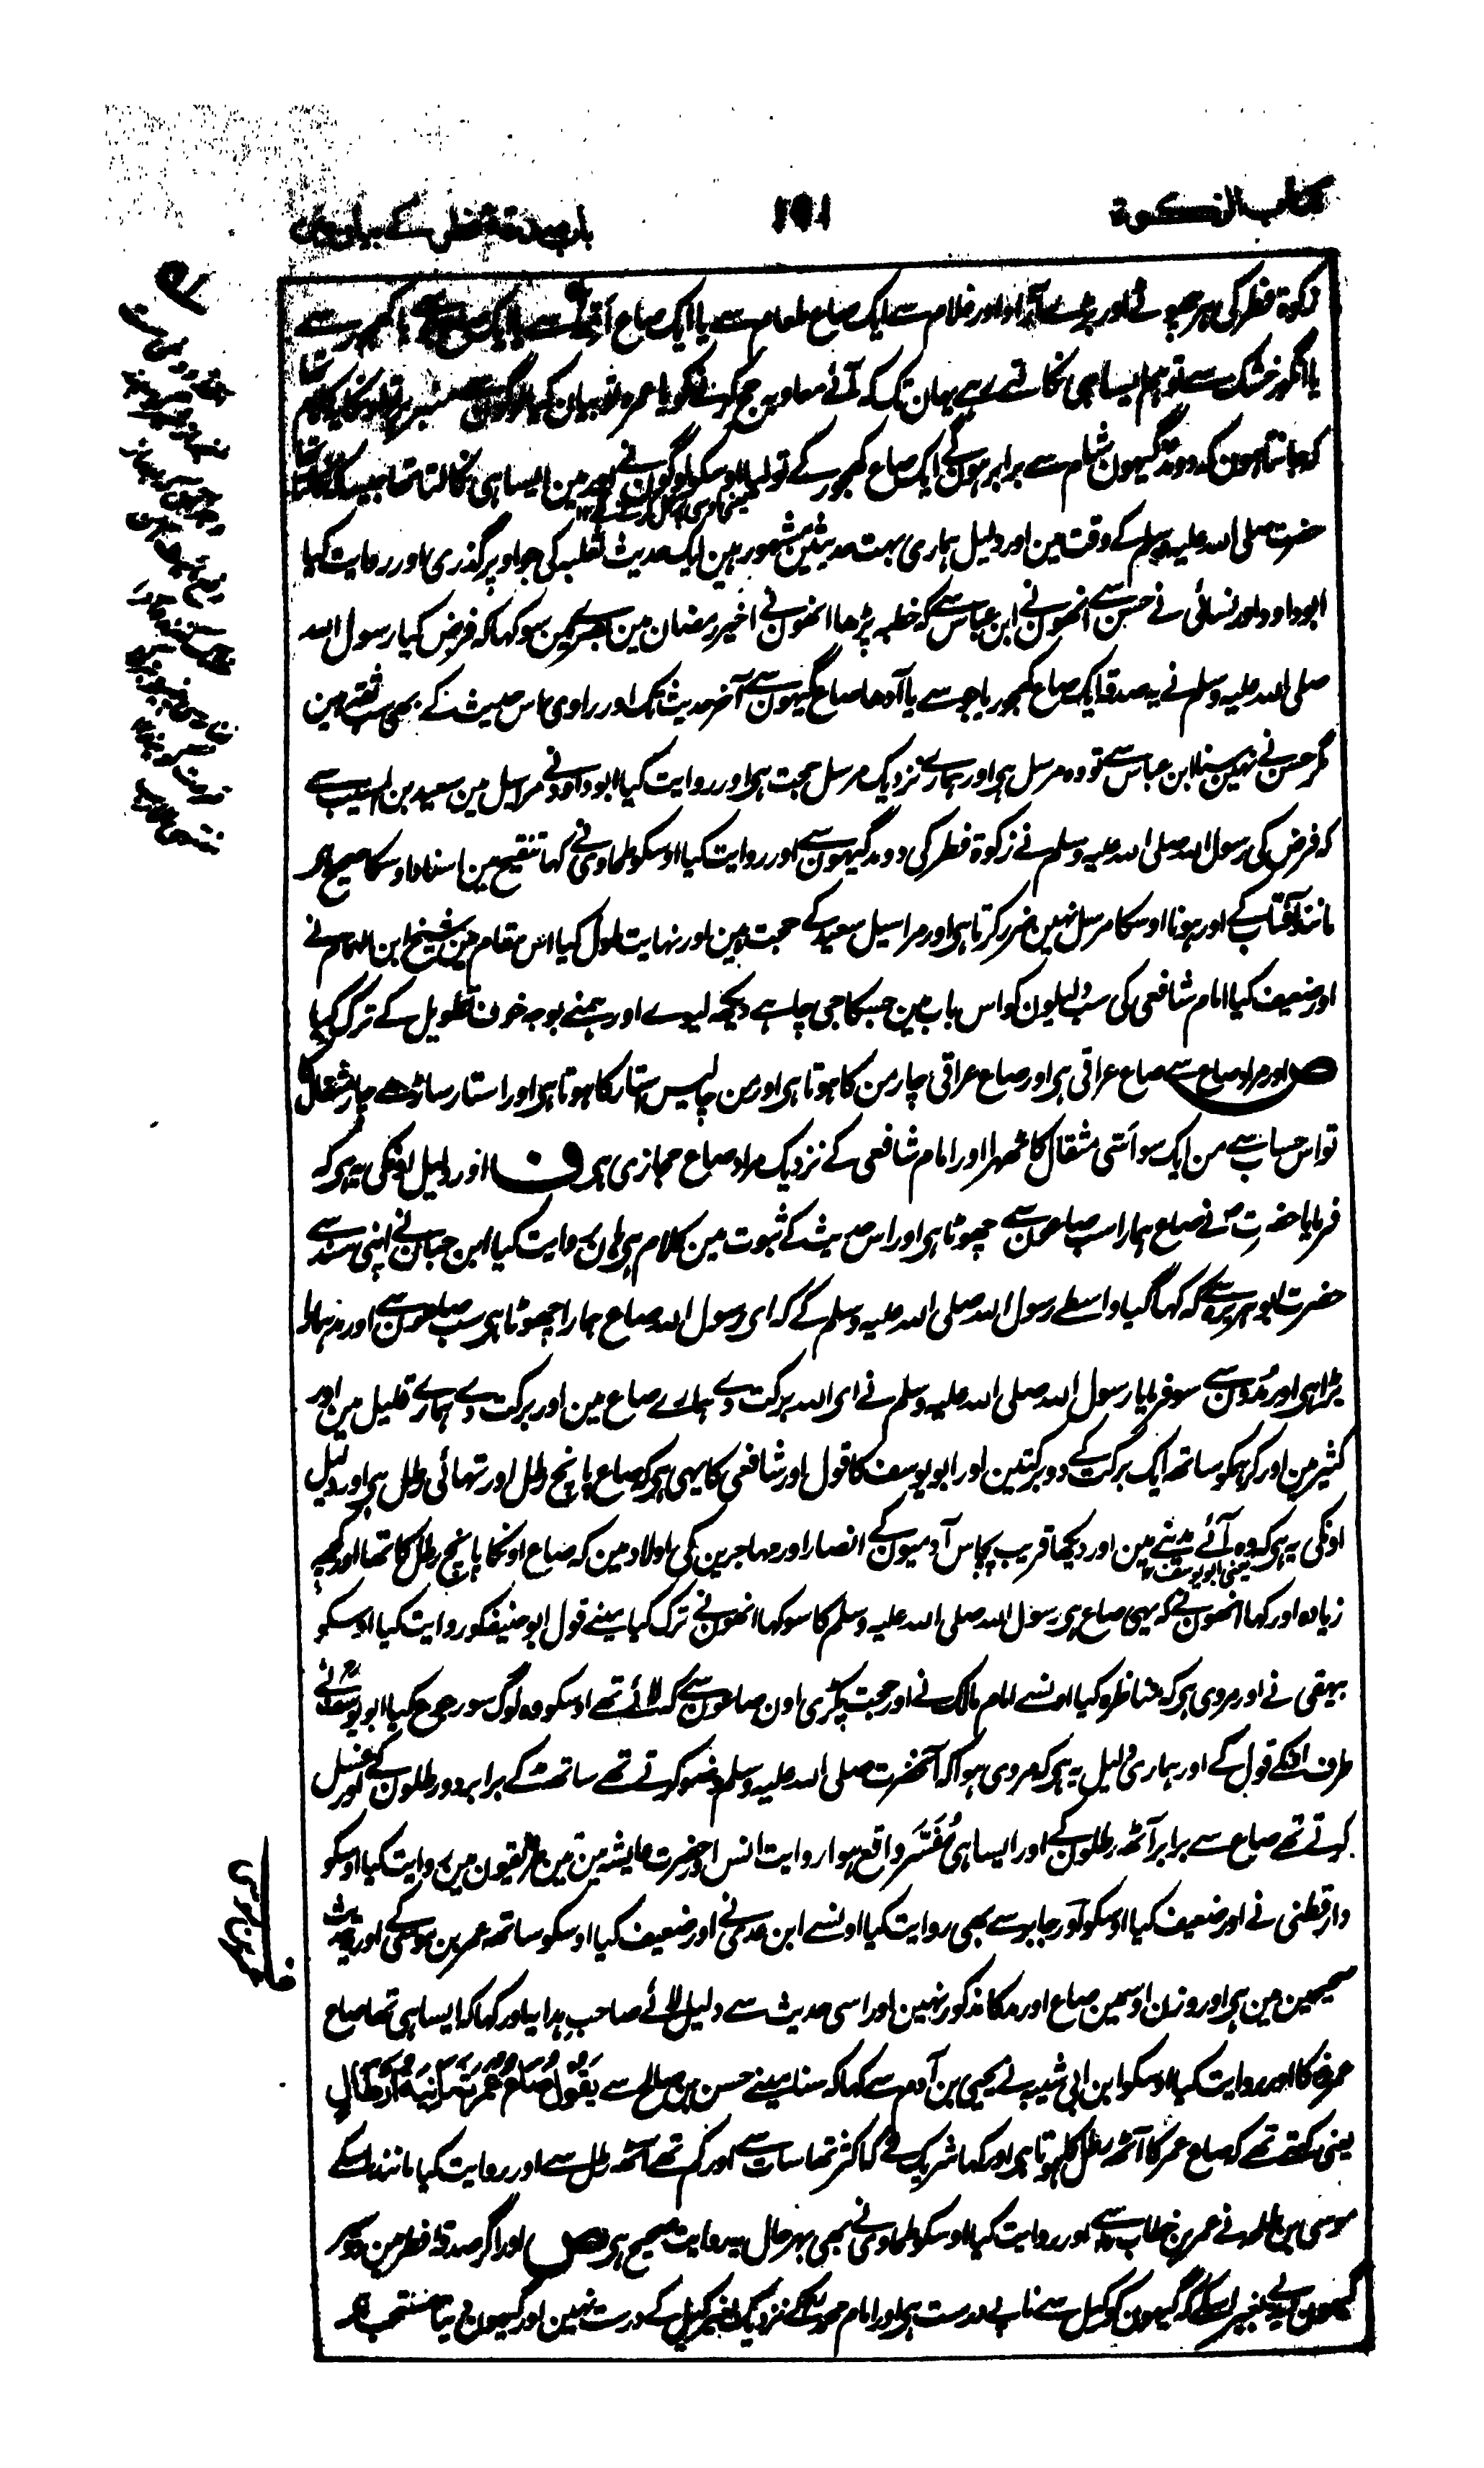 کتاب الزکوة
باب صدقة فطر کے بیان مین
زکوة فطر کی ہر چھوٹے اور بڑے آزاد اور غلام سے ایک صاع طعام سے یا ایک صاع سے یا ایک صاع یا کھجور سے
یا انگور خشک سے تو ہم ایسا ہی نکالتے رہے یہان تک کہ آئے معاویہ حج کرنے کو یا عمرہ تو بیان کیا منبر پر
کہ جانتا ہون کہ دو مد گیہون شام سے برابر ہون گے ایک صاع کھجور کے تو لیا اوسکو لوگون نے مین ایسا ہی نکالتا تھا جیسا کہ نکالتا تھا
حضرت صلی اللہ علیہ وسلم کے وقت مین اور دلیل ہماری بہت حدیثین مشہور ہین ایک حدیث ثعلبہ کی جو اوپر گذری اور روایت کیا
ابوداود اور نسائی نے حسن سے انھون نے ابن عباس سے کہ خطبہ پڑھا انھون نے اخیر رمضان مین بصرے مین سو کہا کہ فرض کیا رسول اللہ
صلی اللہ علیہ وسلم نے یہ صدقہ ایک صاع کھجور یا جو سے یا آدھا صاع گیہون سے آخر حدیث تک اور راوی اس حدیث کے بھی سب ثقہ ہین
مگر حسن نے نہین سنا ابن عباس سے تو وہ مرسل ہی اور ہمارے نزدیک مرسل حجت ہی اور روایت کیا ابوداود نے مراسل مین سعید بن المسیب سے
کہ فرض کی رسول اللہ صلی اللہ علیہ وسلم نے زکوة فطر کی دو مد گیہون سے اور روایت کیا اوسکو طحاوی نے کہا تنقیح مین اسناد اوسکا صحیح ہی
مانند آفتاب کے اور ہونا اوسکا مرسل نہین ضرر کرتا ہی اور مراسیل سعید کے حجت ہین اور نہایت طول کیا اس مقام مین شیخ ابن الہمام نے
اور ضعیف کیا امام شافعی کی سب دلیلون کو اس باب مین جسکا جی چاہے دیکھ لیوے اور ہمنے بوجہ خوف تطویل کے ترک کیا
ص اور مراد صاع سے صاع عراقی ہی اور صاع عراقی چار من کا ہوتا ہی اور من چالیس استار کا ہوتا ہی اور استار ساڑھے چار مثقال کا
تو اس حساب سے من ایک سو اَسّی مثقال کا ٹھہرا اور امام شافعی کے نزدیک مراد صاع حجازی ہی ف اور دلیل اونکی یہ ہی کہ
فرمایا حضرت نے صاع ہمارا سب صاعون سے چھوٹا ہی اور اس حدیث کے ثبوت مین کلام ہی ہان روایت کیا ابن حبان نے اپنی سند سے
حضرت ابو ہریرہ سے کہ کہا گیا واسطے رسول اللہ صلی اللہ علیہ وسلم کے کہ ای رسول اللہ صاع ہمارا چھوٹا ہی سب صاعون سے اور مد ہمارا
بڑا ہی اور مُدون سے سو فرمایا رسول اللہ صلی اللہ علیہ وسلم نے ای اللہ برکت دے ہمارے صاع مین اور برکت دے ہمارے قلیل مین اور
کثیر مین اور کر ہمکو ساتھ ایک برکت کے دو برکتین اور ابو یوسف کا قول اور شافعی کا یہی ہی کہ صاع پانچ رطل اور تہائی رطل ہی اور دلیل
اونکی یہ ہی کہ وہ آئے مدینے مین اور دیکھا قریب پچاس آدمیون کے انصار اور مہاجرین کی اولاد مین کہ صاع اونکا پانچ رطل کا تھا اور کچھ
یعنی ابو یوسف ۱۲
زیادہ اور کہا انھون نے کہ یہی صاع ہی رسول اللہ صلی اللہ علیہ وسلم کا سو کہا انھون نے ترک کیا مینے قول ابو حنیفہ کو روایت کیا اوسکو
بیہقی نے اور مروی ہی کہ مناظرہ کیا اونسے امام مالک نے اور حجت پکڑی اون صاعون سے کہ لائے تھے اوسکو وہ لوگ سو رجوع کیا ابو یوسف نے
طرف انکے قول کے اور ہماری دلیل یہ ہی کہ مروی ہوا کہ آنحضرت صلی اللہ علیہ وسلم وضو کرتے تھے ساتھ مُد کے برابر دو رطلون کے اور غسل
کرتے تھے صاع سے برابر آٹھ رطلون کے اور ایسا ہی مُفَسَّر واقع ہوا روایت انس اور حضرت عایشہ مین تین طریقون مین روایت کیا اوسکو
دارقطنی نے اور ضعیف کیا اوسکو اور جابر سے بھی روایت کیا اونسے ابن عدی نے اور ضعیف کیا اوسکو ساتھ عمر بن موسی کے اور حدیث
صحیحین مین ہی اور وزن اوسمین صاع اور مد کا مذکور نہین اور اسی حدیث سے دلیل لائے صاحب ہدایہ اور کہا کہ ایسا ہی تھا صاع
عمر کا اور روایت کیا اوسکو ابن ابی شیبہ نے یحیی بن آدم سے کہا کہ سنا مینے حسن بن صالح سے یَقُوْلُ صَاعُ عُمَرَ ثَمَانِیَةُ اَرْطَالٍ
یعنی کہتے تھے کہ صاع عمر کا آٹھ رطل کا ہوتا ہی اور کہا شریک نے کہ اکثر تھا سات سے اور کم تھے آٹھ رطل سے اور روایت کیا مانند اسکے
موسی بن طلحہ نے عمر بن خطاب سے اور روایت کیا اوسکو طحاوی نے بھی بہر حال یہ روایت صحیح ہی ص اور اگر صدقہ فطر مین
گیہون بغیر اسکے کہ گیہون کو کیل سے ناپے درست ہی اور امام محمد کے نزدیک بغیر کیل کے درست نہین اور گیہون دینا مستحب ہی